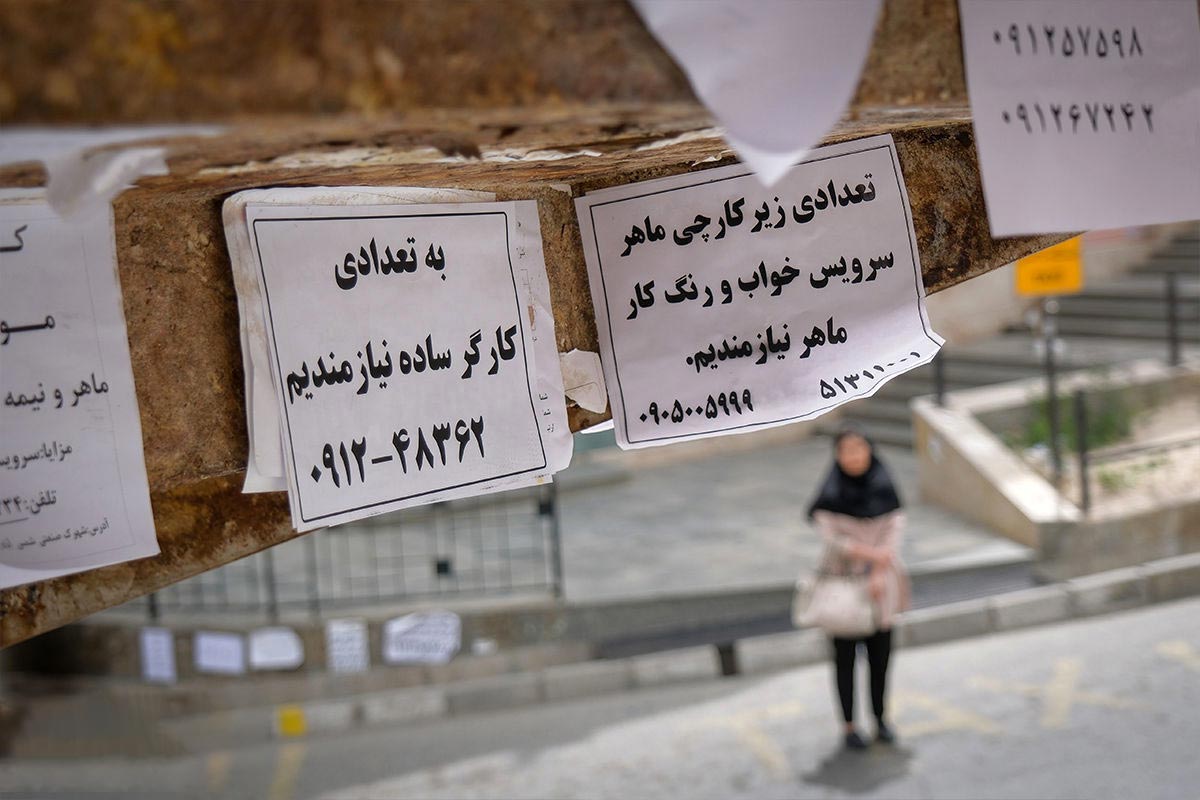 ماهر و نیمه
مزایا:سرویس
تلفن:
آدرس:شهرک صنعتی شمس
به تعدادی
کارگر ساده نیازمندیم
۰۹۱۲-۴۸۳۶۲
تعدادی زیر کارچی ماهر
سرویس خواب و رنگ کار
ماهر نیازمندیم.
۰۹۰۵۰۰۵۹۹۹ ۵۱۳۱۱۰۰۱
۰۹۱۲۵۷۵۹۸
۰۹۱۲۶۷۲۴۲